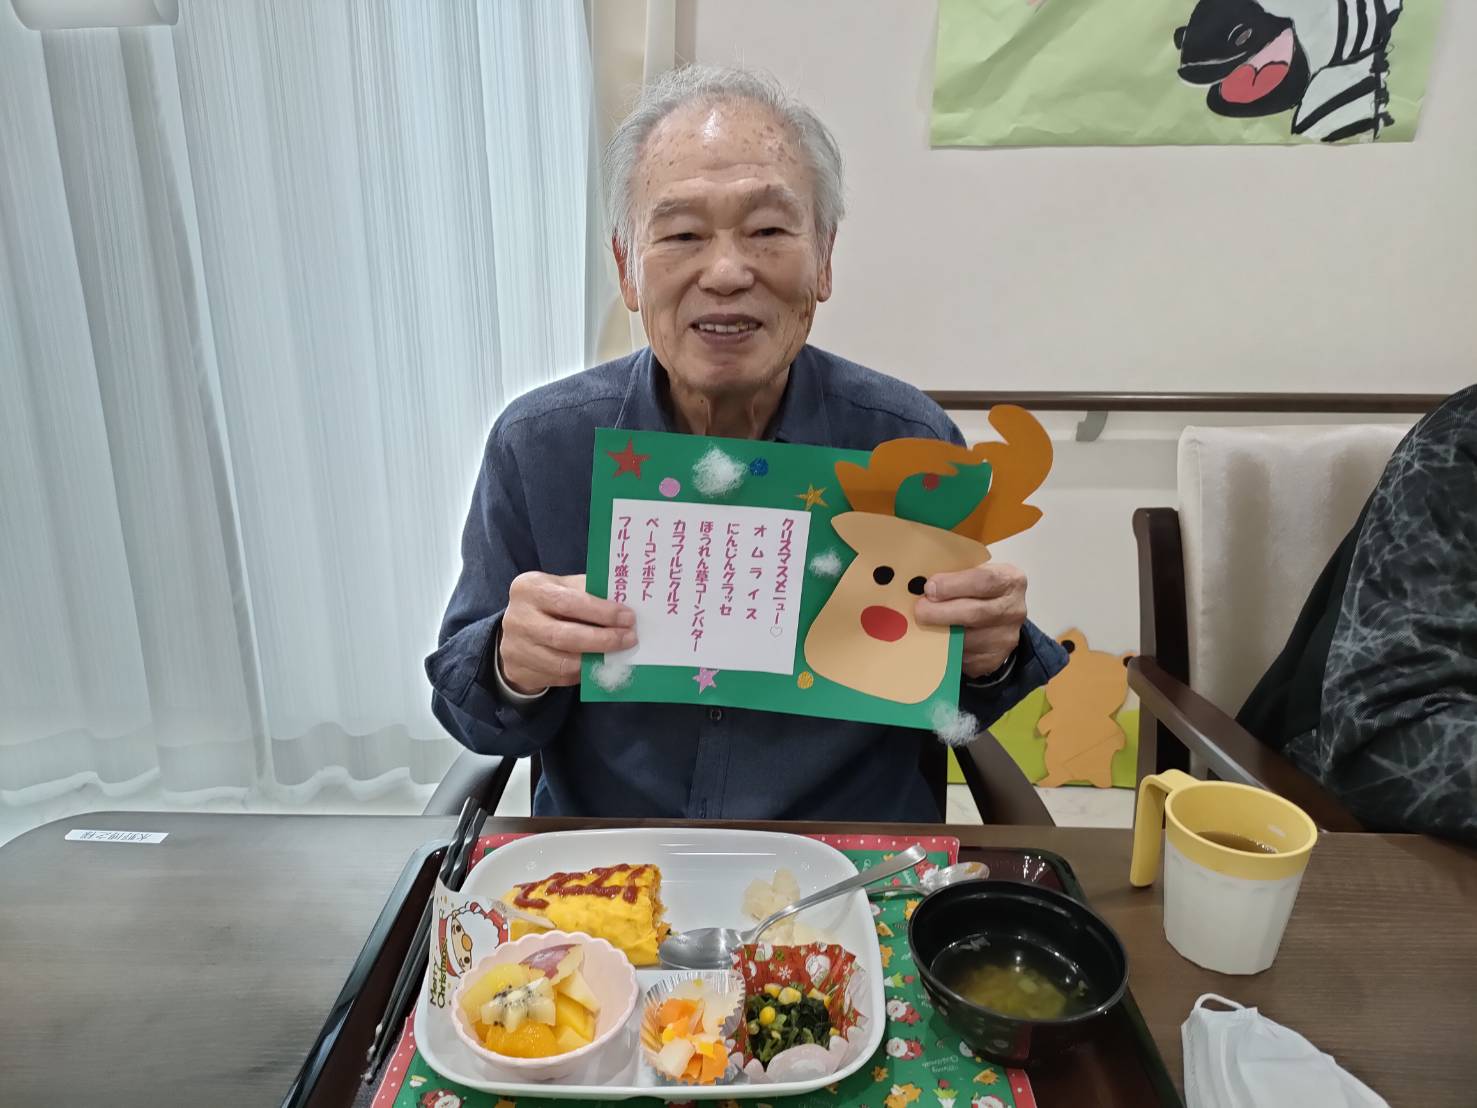 クリスマスメニュー♡
オムライス
にんじんグラッセ
ほうれん草コーンバター
カラフルピクルス
ベーコンポテト
フルーツ盛合わ
Merry
Christmas